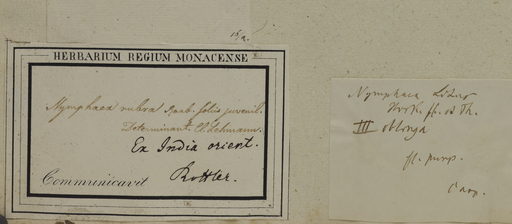 15/a.
HERBARIUM REGIUM MONACENSE
Nymphaea rubra Roxb. foliis juvenil.
Determinant. Cl. Lehmann.
Ex India orient.
Communicavit Rottler.
Nymphaea Lotus
Hook. fl. et Th.
III oblonga
fl. purp.